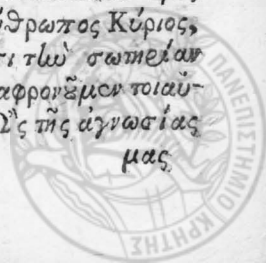 ύθρωπος Κύριος,
τι τὼ σωτηρίαν
αφρονοῦμεν τοιαύ-
ῆς τῆς ἀγνωσίας
μας
ΠΑΝΕΠΙΣΤΗΜΙΟ ΚΡΗΤΗΣ